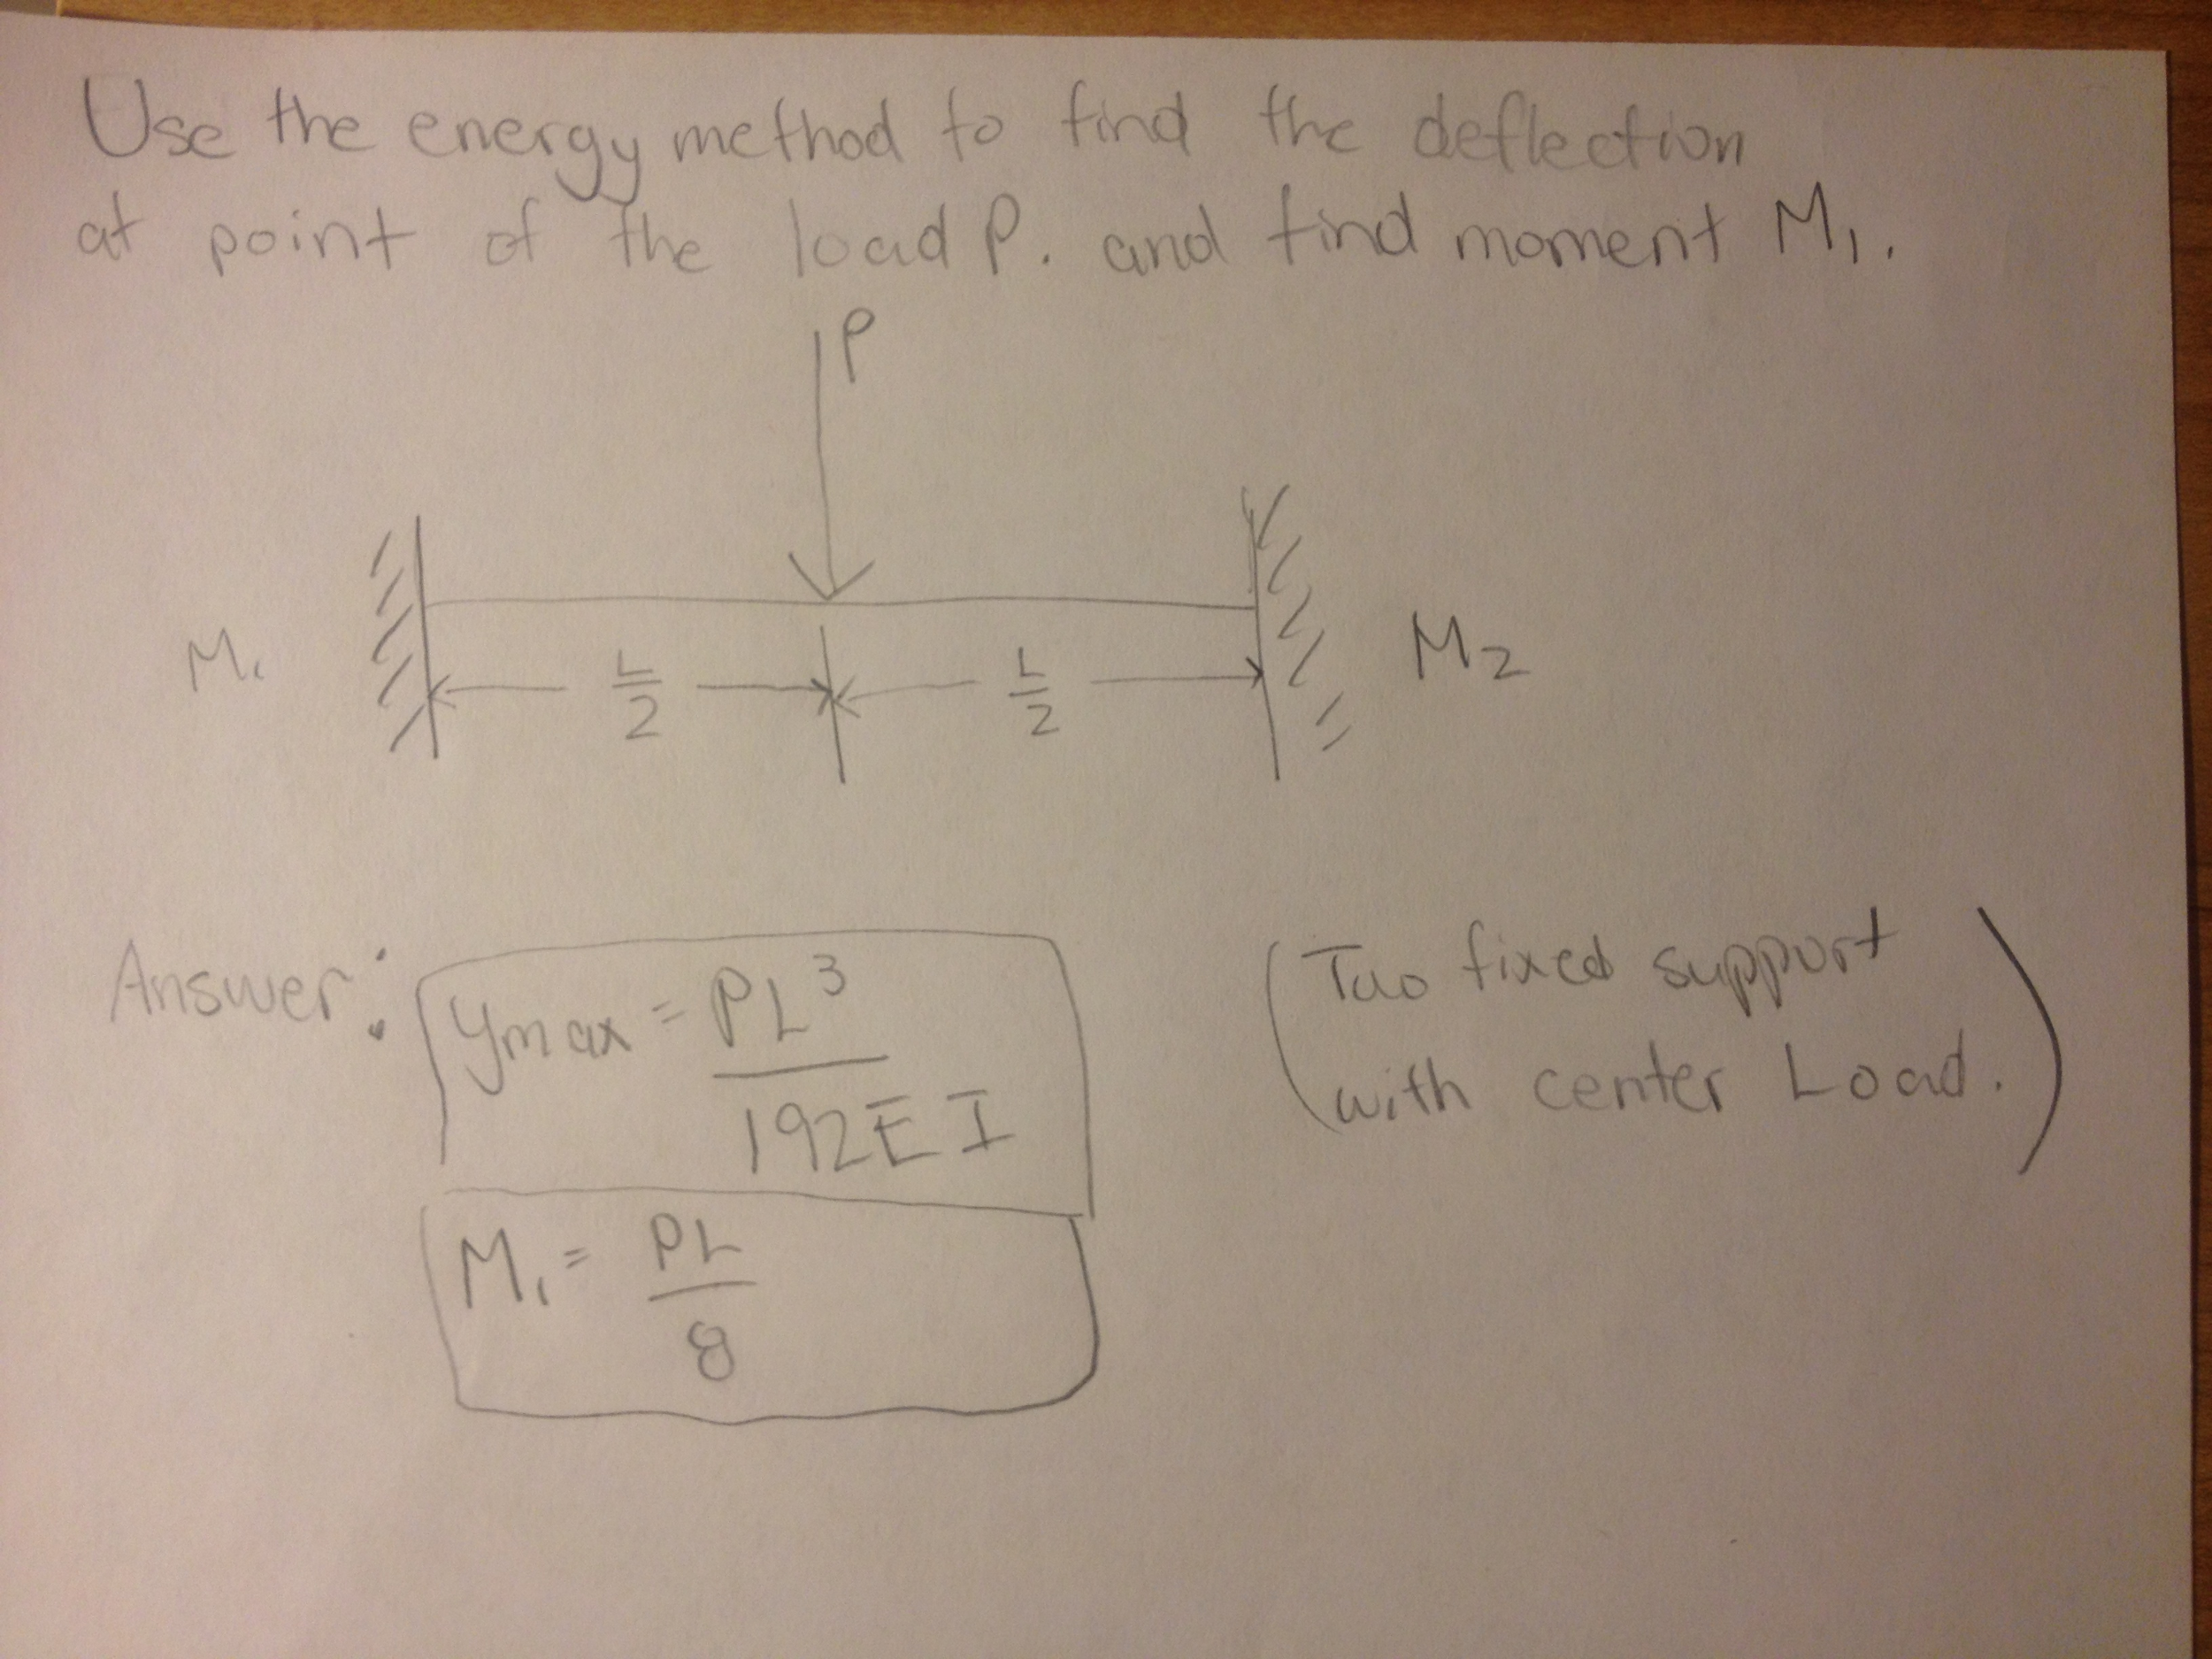 Use the energy method to find the deflection
at point of the load P. and find moment M₁.
P
M₁ L/2 L/2 M₂
Answer: ymax = PL³/192EI (Two fixed support
with center Load.)
M₁ = PL/8